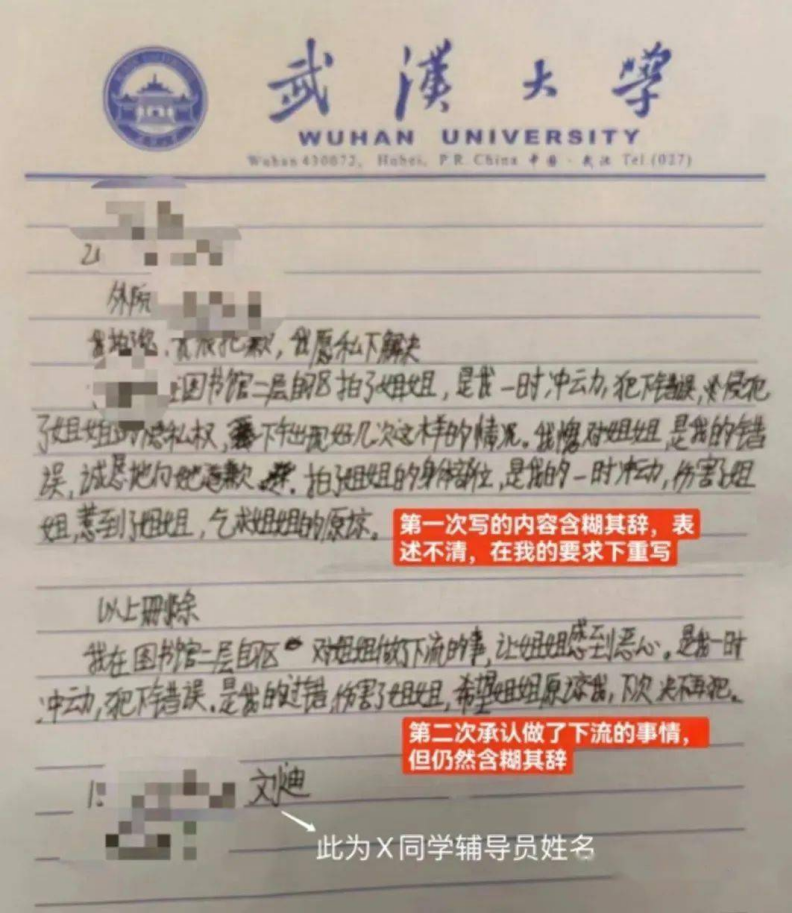 武漢大學
WUHAN UNIVERSITY
Wuhan 430072, Hubei, P.R. China 中国·武汉 Tel (027)
外院
歉,我愿私下解决
图书馆二层自习区拍了姐姐,是我一时冲动,犯下错误,侵犯
了姐姐的隐私权,下午出现好几次这样的情况。我愧对姐姐,是我的错
误,诚恳地向她道歉。拍了姐姐的身体部位,是我的一时冲动,伤害了姐
姐,惹到了姐姐,乞求姐姐的原谅。
第一次写的内容含糊其辞,表
述不清,在我的要求下重写
以上删除
我在图书馆二层自习区对姐姐做了下流的事,让姐姐感到恶心。是我一时
冲动,犯下错误。是我的过错伤害了姐姐,希望姐姐原谅我,下次决不再犯。
第二次承认做了下流的事情,
但仍然含糊其辞
此为X同学辅导员姓名